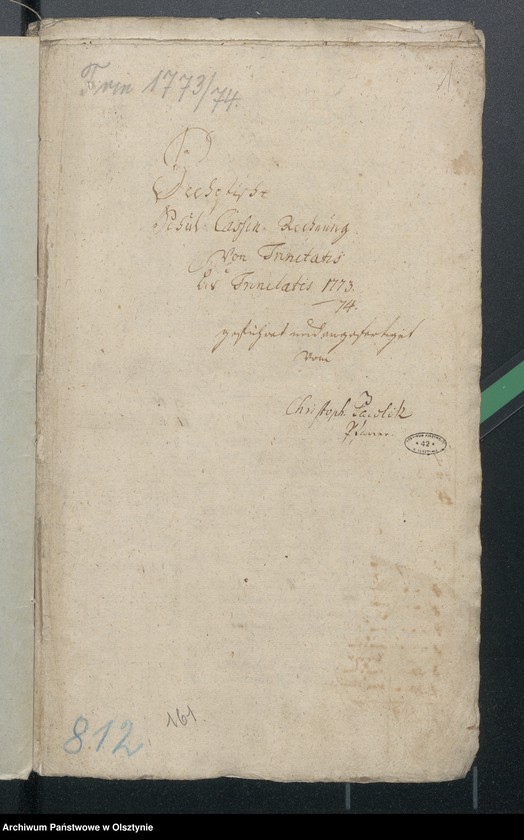 1
Trin 1773/74.
Schul-Cassen-Rechnung
Von Trinitatis
bis Trinitatis 1773.
74.
geführet und angefertiget
vom
Christoph
Pfarrer.
42
812
161.
Archiwum Państwowe w Olsztynie